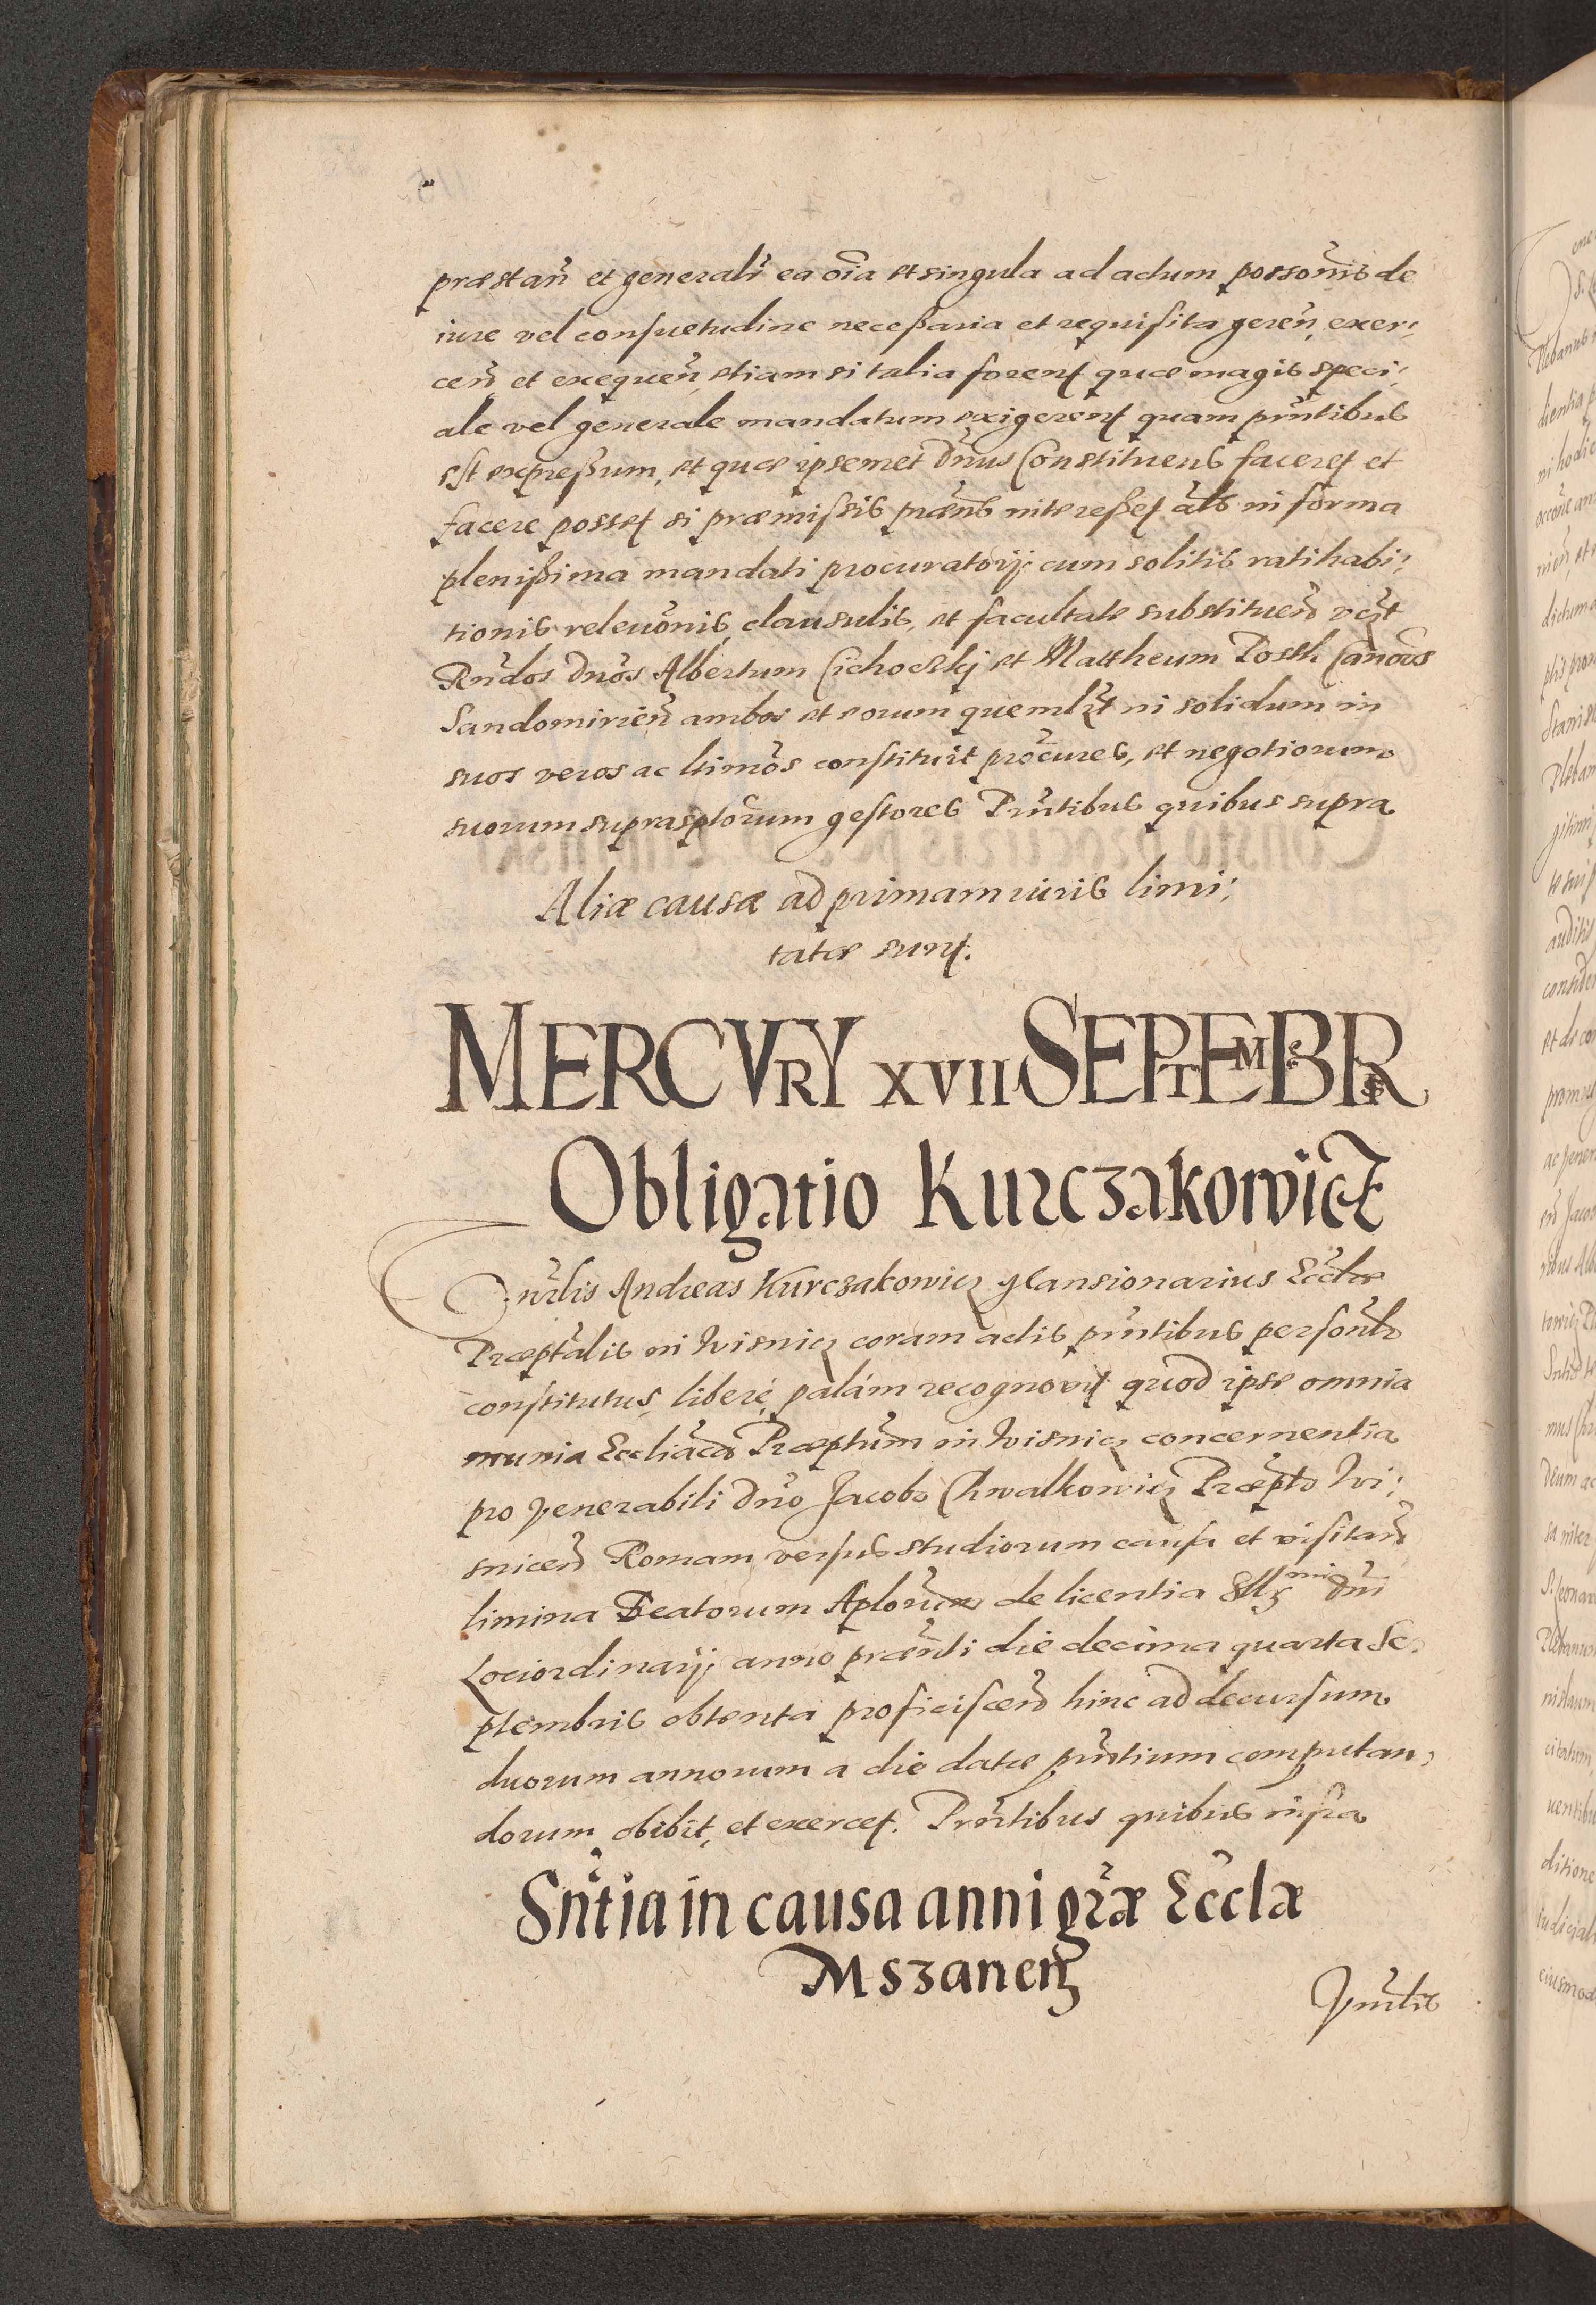 præstan̄ et generalr̄ ea oīa et singula ad actum possoñis de
iure vel consuetudine neceßaria et requisita geren̄, exer:
cen̄ et exequen̄, etiam si talia forent quæ magis speci:
ale vel generale mandatum exigerent quam pñtibus
est expreßum, et quæ ipsemet dñus Constituens faceret et
facere posset si præmissis præns intereßet als in forma
plenißima mandati procuratorij cum solitis ratihabi:
tionis relevōnis, clausulis, et facultate substituen̄ vczt
Rñdos dños Albertum Cichockj et Mattheum Posth. Canōcos
Sandomirien̄ ambos et eorum quemlzt in solidum in
suos veros ac ltimōs constituit prōcures, et negotiorum
suorum suprasptōrum gestores Pñtibus quibus supra
Aliæ causæ ad primam iuris limi:
tatæ sunt.
MERCVRY XVII SEPTEMBR
Obligatio Kurczakowicz
Hñrlis Andreas Kurczakowicz Mansionarius Ecclæ
Præptālis in Wisnicz coram actis pñtibus persoñlr
constitutus, liberé, palám recognovit quod ipse omnia
munia Eccliācā Præptum̄ in Wisnicz concernentia
pro Venerabili dño Jacobo Chwalkowicz Præpto Wi:
snicen̄ Romam versus studiorum causa et visitan̄
limina Beatorum Aplōrum de licentia Illmi dñi
Lociordinarij anno prænti die decima quarta Se:
ptembris obtenta proficiscen̄ hinc ad decursum
duorum annorum a die datæ pñtium computan:
dorum obibit, et exercet. Pñtibus quibus infra
Sñtia in causa anni græ Ecclæ
Mszanen̄
Vñrlis